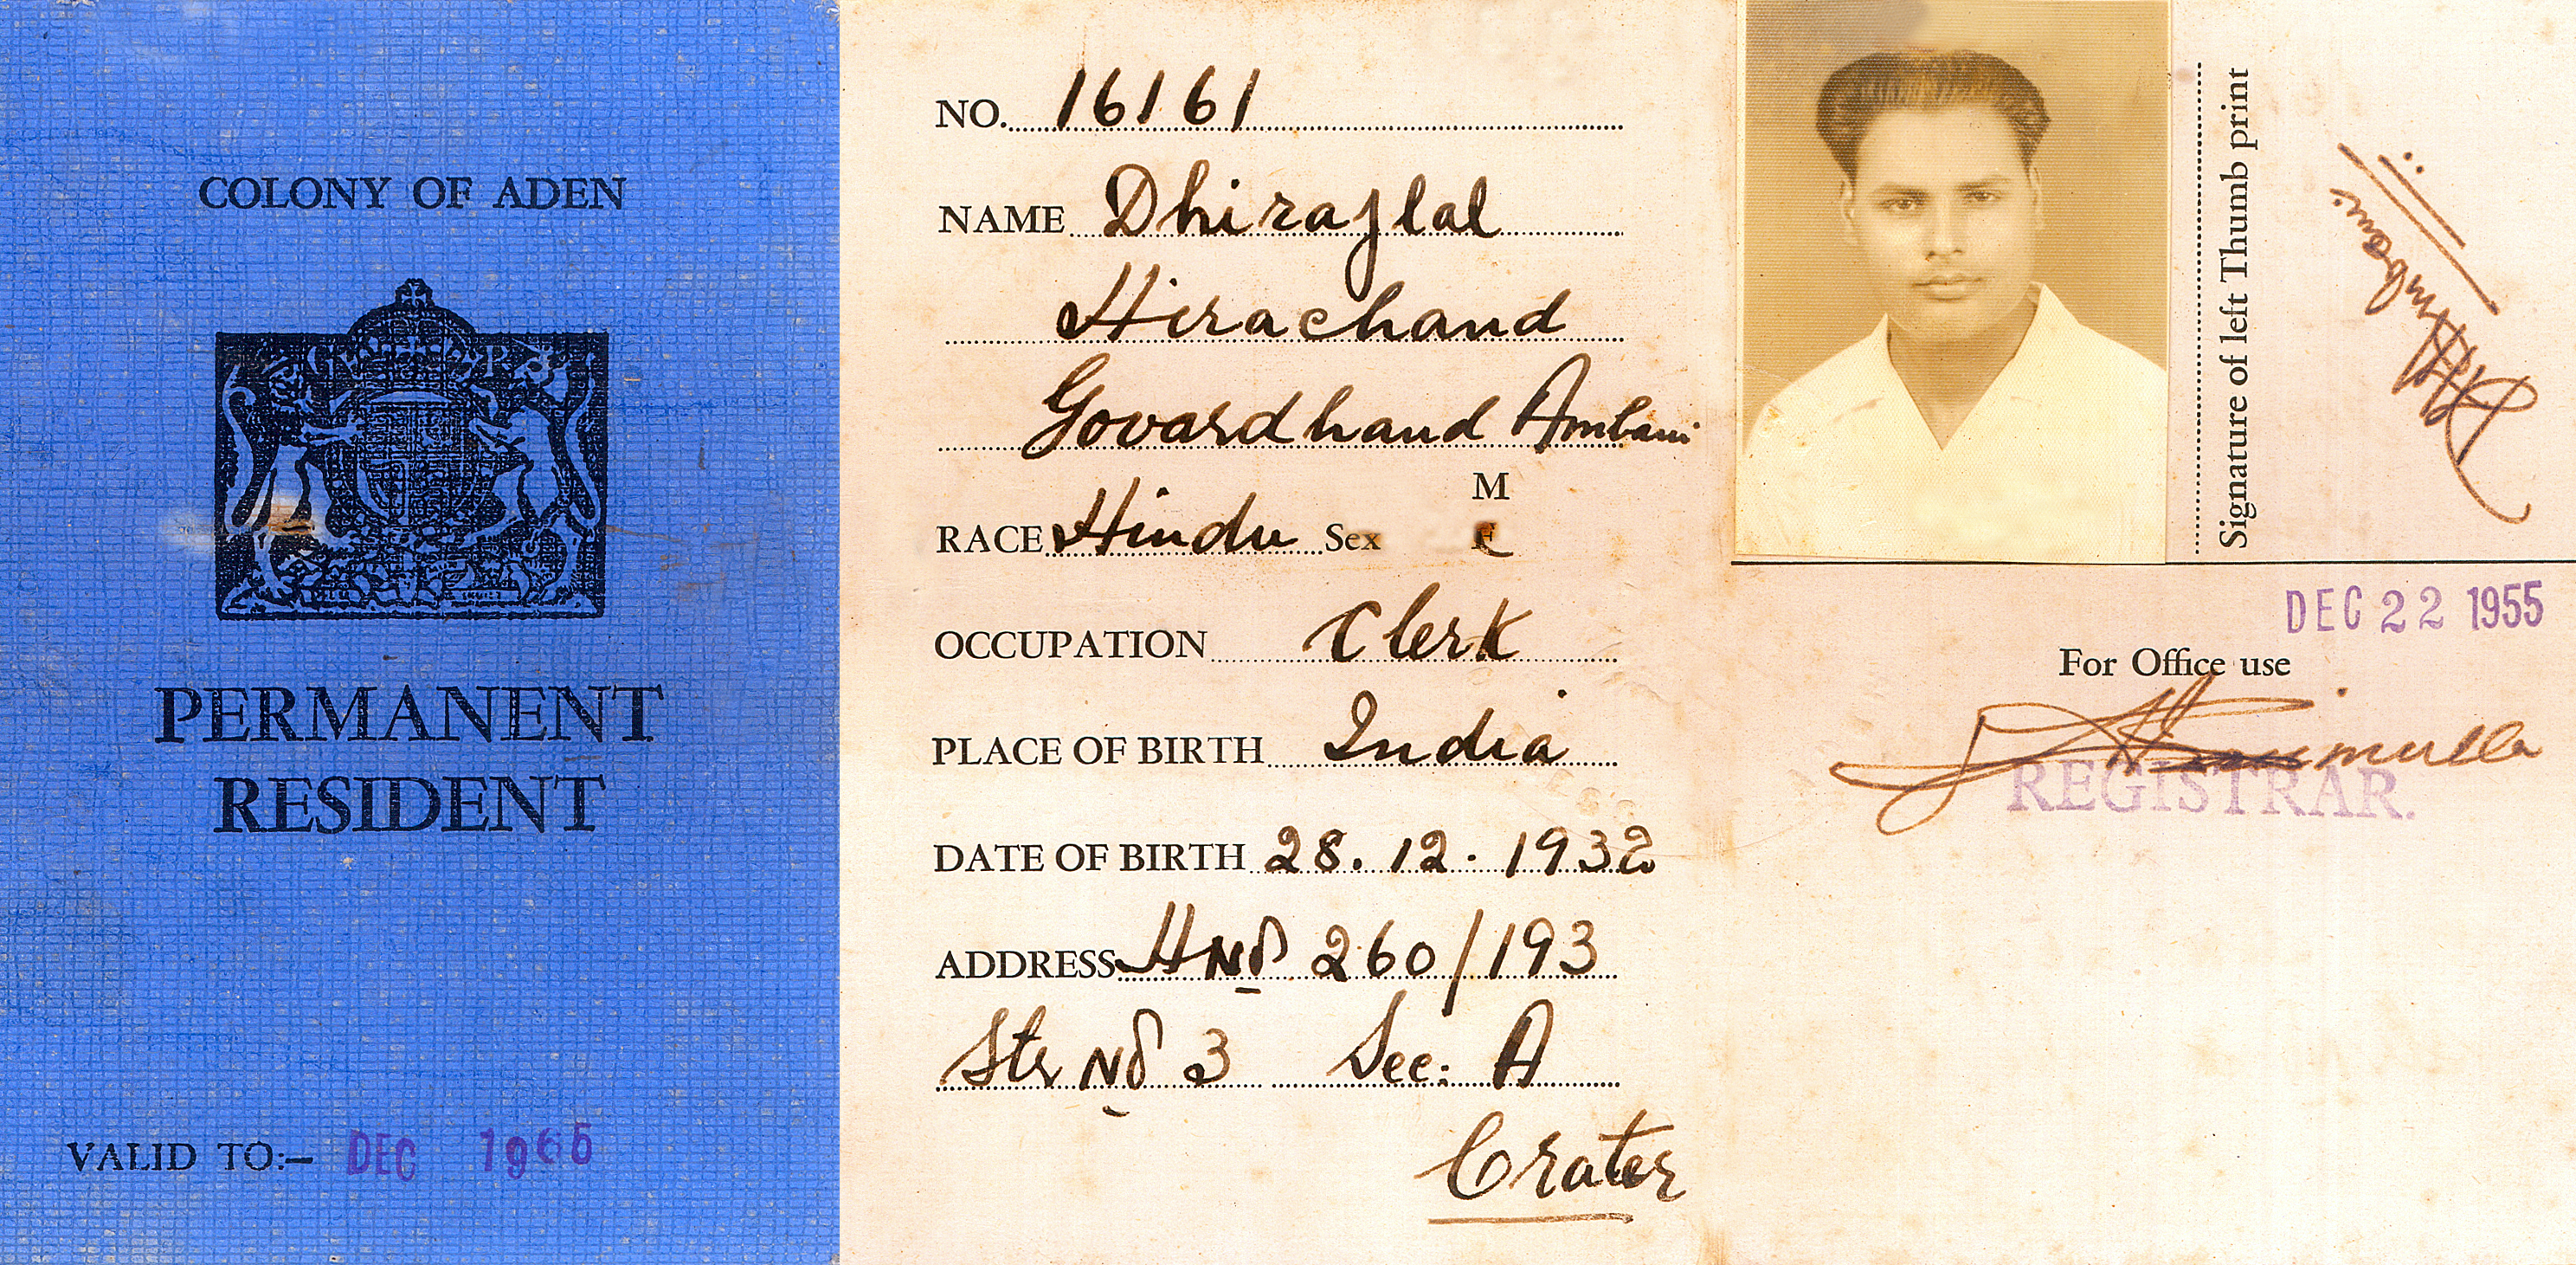 COLONY OF ADEN
PERMANENT
RESIDENT
VALID TO:- DEC 1965
NO. 16161
NAME Dhirajlal
Hirachand
Govardhand Ambani
M
RACE Hindu Sex
OCCUPATION Clerk
PLACE OF BIRTH India
DATE OF BIRTH 28.12.1932
ADDRESS HNo 260/193
Str No 3 Sec: A
Crater
Signature of left Thumb print
DEC 22 1955
For Office use
REGISTRAR.